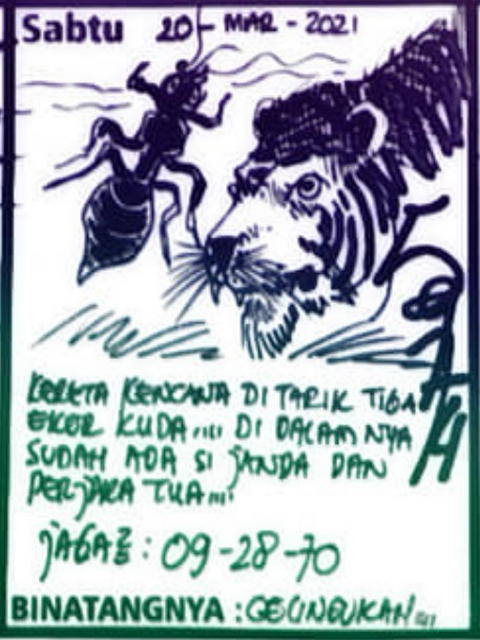 Sabtu 20 - MAR - 2021
KERETA KENCANA DI TARIK TIGA
EKOR KUDA,,,, DI DALAMNYA
SUDAH ADA SI JANDA DAN
PERJAKA TUA,,,
JAGA2 : 09-28-70
BINATANGNYA :